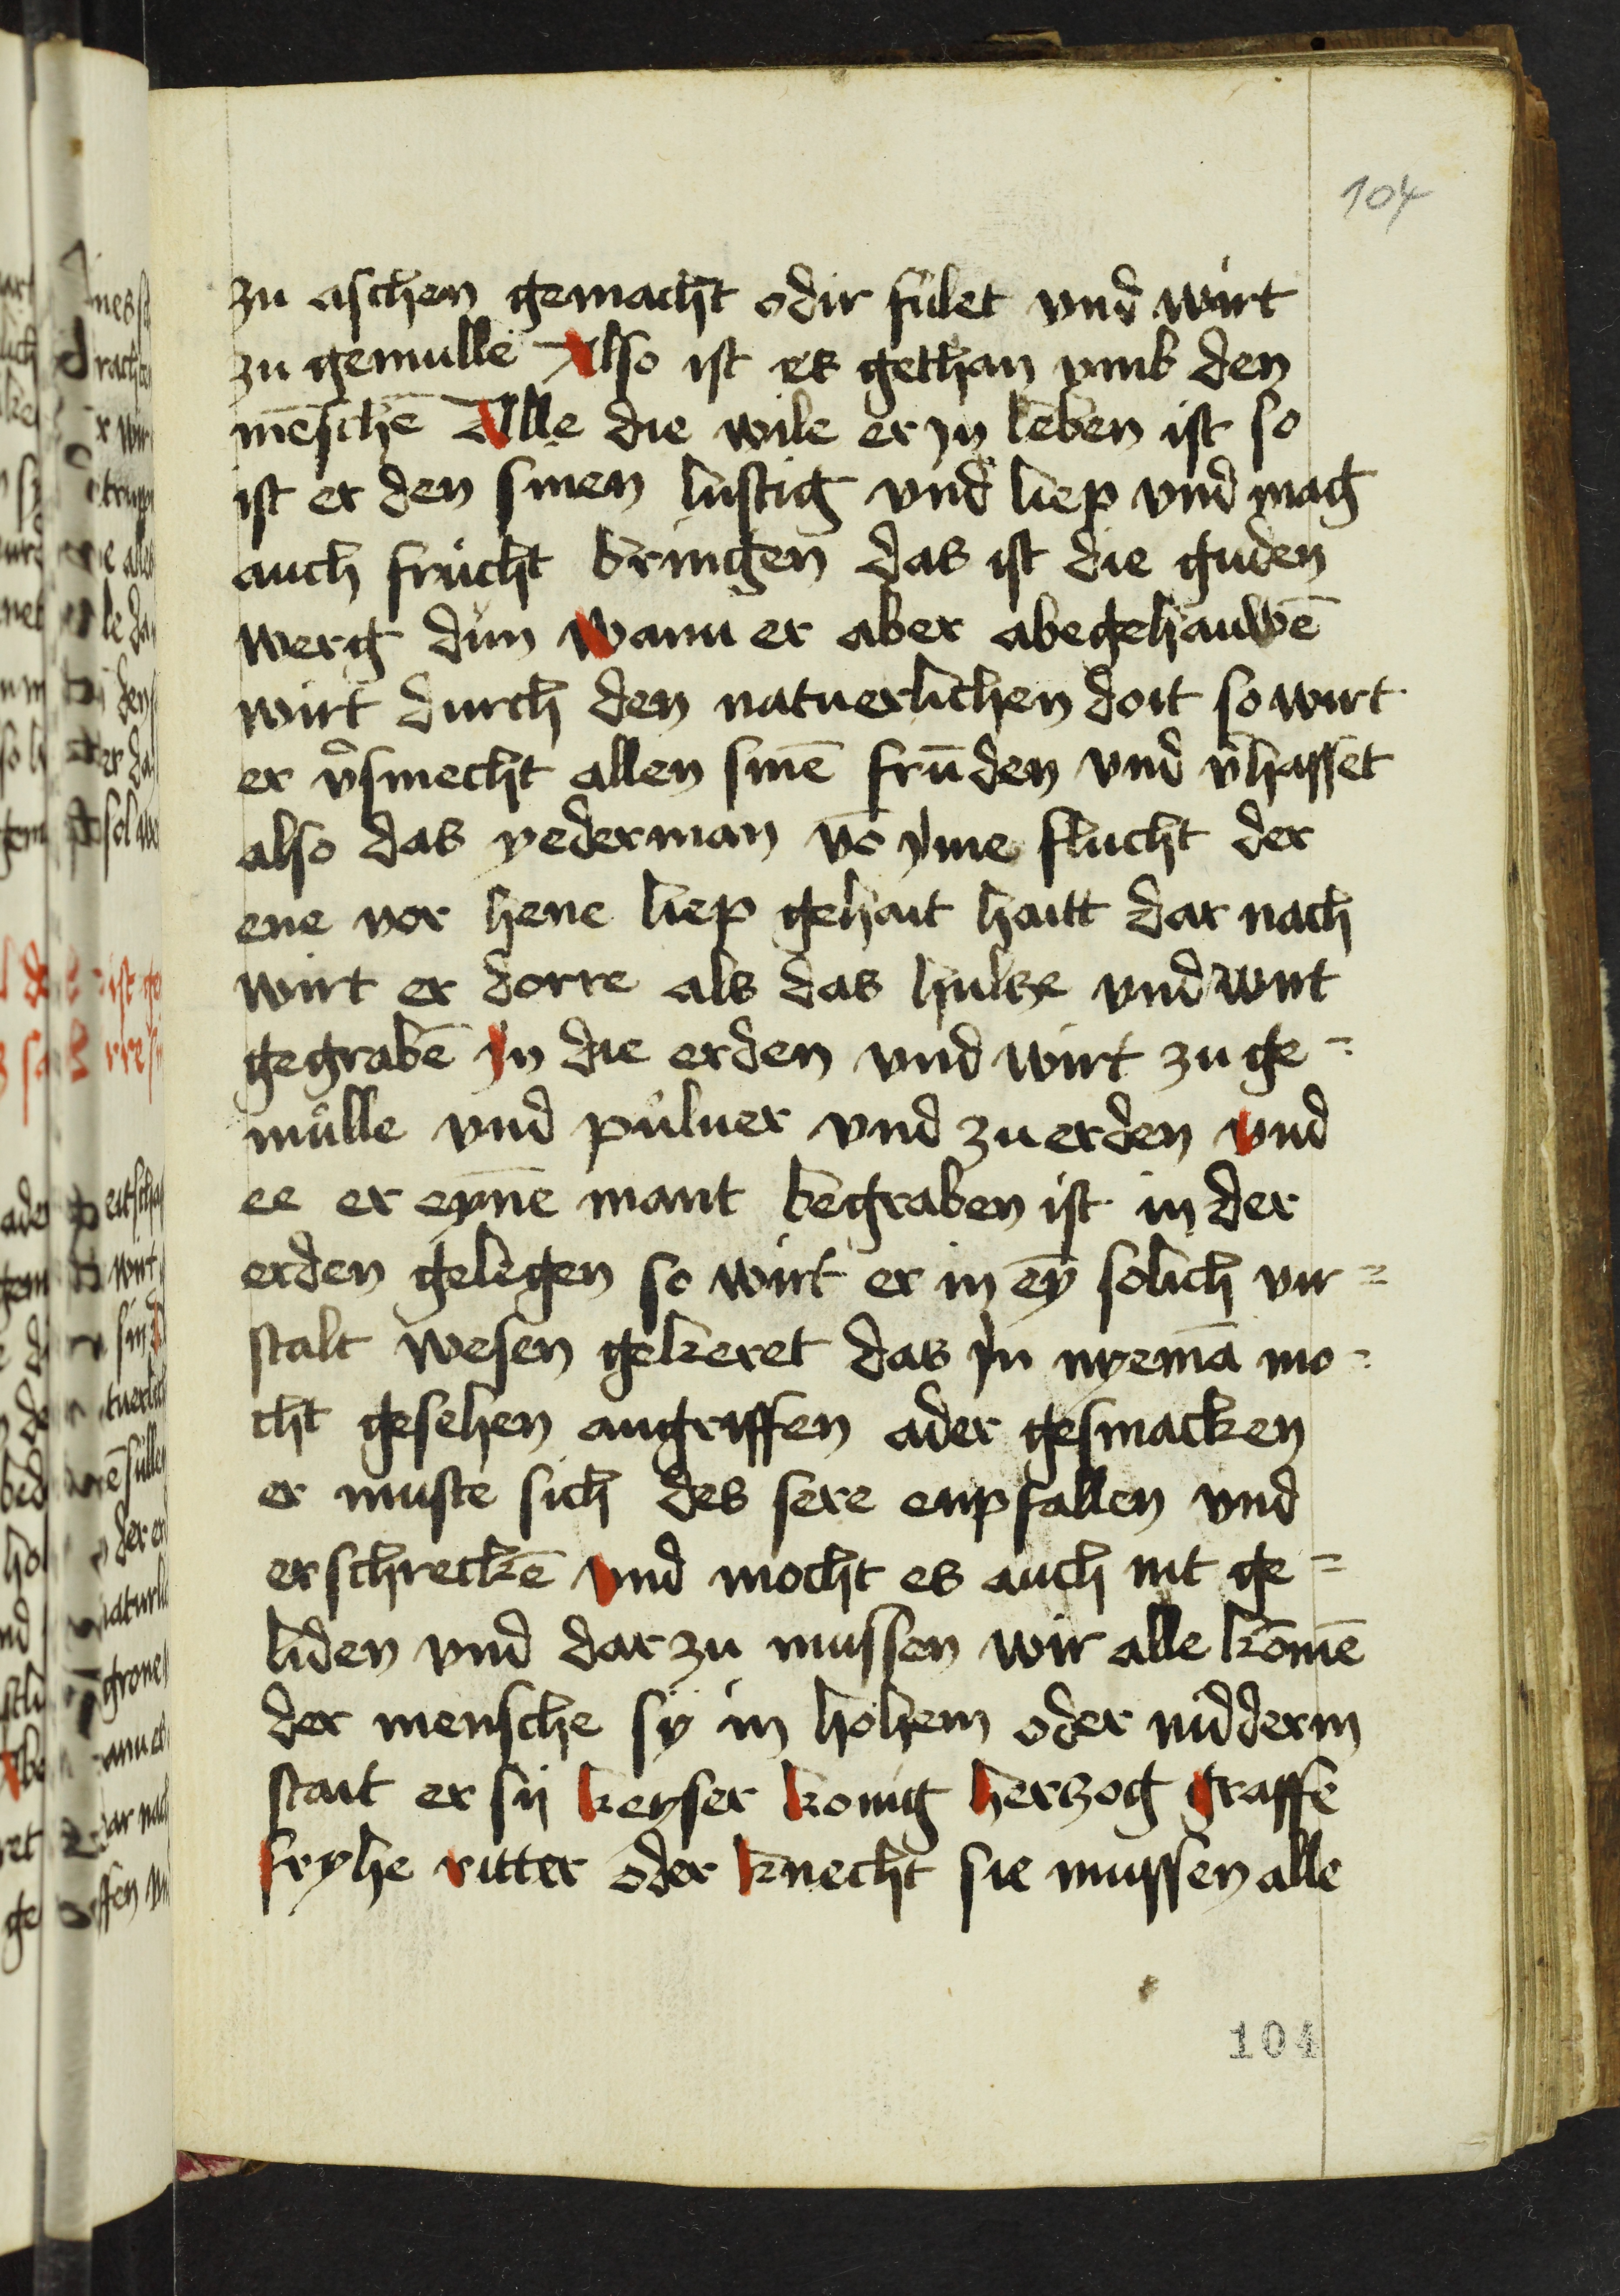 104
zu aschen gemacht odir fulet vnd wirt
zu gemulle Also ist es gethan vmb den
mēschē Alle die wile er yn leben ist so
ist er den sinen lustig vnd liep vnd mag
auch frucht bringen das ist die guden
werg dün wann er aber abegehauwē
wirt durch den natuerlichen doit so wirt
er v̉smecht allen sinē frūden vnd v̉hasset
also das yederman vō yme flucht der
ene vor hene liep gehait haitt dar nach
wirt er dorre als das hultze vnd wirt
gegrabē yn die erden vnd wirt zu ge=
mulle vnd puluer vnd zu erden vnd
ee er eynē mant begraben ist in der
erden gelegen so wirt er in eȳ solich vn=
stalt wesen gekeret das yn nyemā mo=
cht gesehen angriffen ader gesmacken
er muste sich des sere enpfallen vnd
erschreckē vnd mocht es auch nit ge=
liden vnd dar zu mussen wir alle kōmē
der mensche sy in hohem oder nidderm
stait er sij keyser konig hertzog graffe
fryhe ritter oder knecht sie mussen alle
104